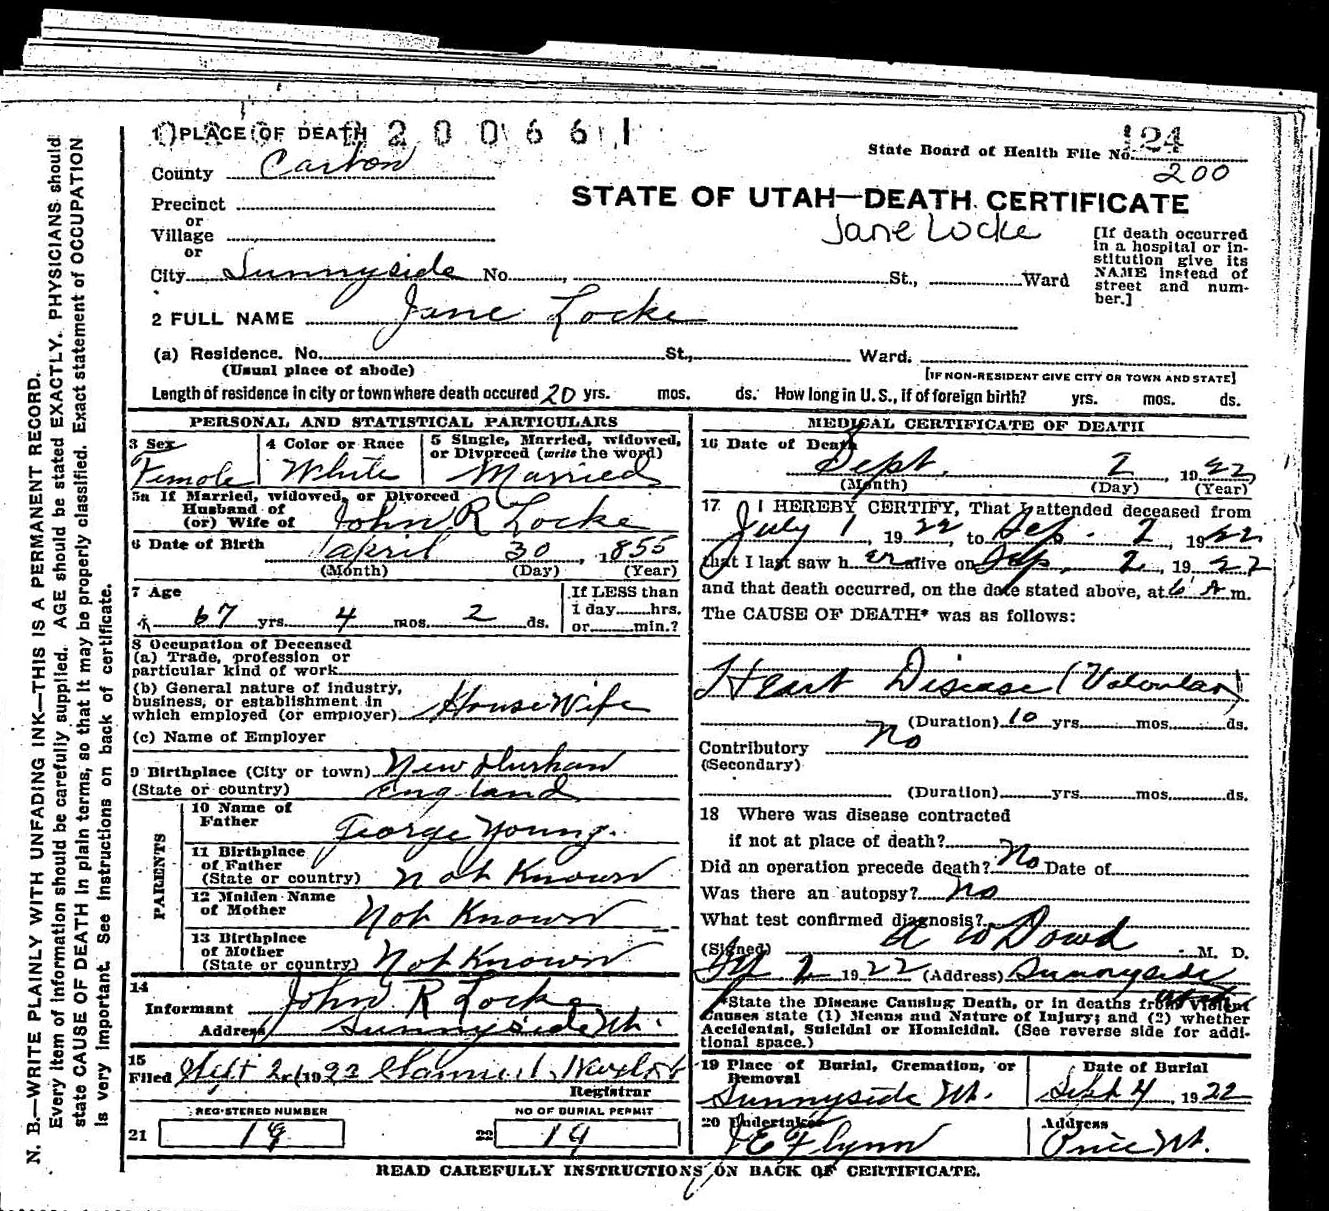 1 PLACE OF DEATH
0 2 0 0 6 6 1
124
State Board of Health File No.
200
County Carbon
Precinct
or
Village
or
STATE OF UTAH—DEATH CERTIFICATE
Jane Locke
[If death occurred in a hospital or institution give its NAME instead of street and number.]
City Sunnyside No. , St., Ward
2 FULL NAME Jane Locke
(a) Residence. No. St., Ward.
(Usual place of abode)
[IF NON-RESIDENT GIVE CITY OR TOWN AND STATE]
Length of residence in city or town where death occured 20 yrs. mos. ds. How long in U. S., if of foreign birth? yrs. mos. ds.
PERSONAL AND STATISTICAL PARTICULARS
3 Sex
Female
4 Color or Race
White
5 Single, Married, widowed,
or Divorced (write the word)
Married
5a If Married, widowed, or Divorced
Husband of
(or) Wife of John R Locke
6 Date of Birth April 30, 1855
(Month) (Day) (Year)
7 Age
67 yrs. 4 mos. 2 ds.
If LESS than
1 day hrs.
or min.?
8 Occupation of Deceased
(a) Trade, profession or
particular kind of work
(b) General nature of industry,
business, or establishment in
which employed (or employer) House Wife
(c) Name of Employer
9 Birthplace (City or town) New Durham
(State or country) England
PARENTS
10 Name of
Father George Young.
11 Birthplace
of Father
(State or country) Not Known
12 Maiden Name
of Mother Not Known
13 Birthplace
of Mother
(State or country) Not Known
14
Informant John R Locke
Address Sunnyside Ut.
15
Filed Sept 2nd 1922
Registrar
REGISTERED NUMBER
21 19
NO OF BURIAL PERMIT
22 19
MEDICAL CERTIFICATE OF DEATH
16 Date of Death
Sept. 2, 1922
(Month) (Day) (Year)
17 I HEREBY CERTIFY, That I attended deceased from
July 1, 1922, to Sep. 2, 1922
that I last saw her alive on Sep. 2, 1922
and that death occurred, on the date stated above, at 6 A m.
The CAUSE OF DEATH* was as follows:
Heart Disease (Valvular)
(Duration) 10 yrs. mos. ds.
Contributory No
(Secondary)
(Duration) yrs. mos. ds.
18 Where was disease contracted
if not at place of death?
Did an operation precede death? No Date of
Was there an autopsy? No
What test confirmed diagnosis?
(Signed) A W Dowd M. D.
2 1922 (Address) Sunnyside
*State the Disease Causing Death, or in deaths from Violent
Causes state (1) Means and Nature of Injury; and (2) whether
Accidental, Suicidal or Homicidal. (See reverse side for addi-
tional space.)
19 Place of Burial, Cremation, or
Removal
Sunnyside Ut.
Date of Burial
Sept 4, 1922
20 Undertaker
J E Flynn
Address
Price Ut.
READ CAREFULLY INSTRUCTIONS ON BACK OF CERTIFICATE.
N. B.—WRITE PLAINLY WITH UNFADING INK—THIS IS A PERMANENT RECORD.
Every item of information should be carefully supplied. AGE should be stated EXACTLY. PHYSICIANS should
state CAUSE OF DEATH in plain terms, so that it may be properly classified. Exact statement of OCCUPATION
is very important. See instructions on back of certificate.